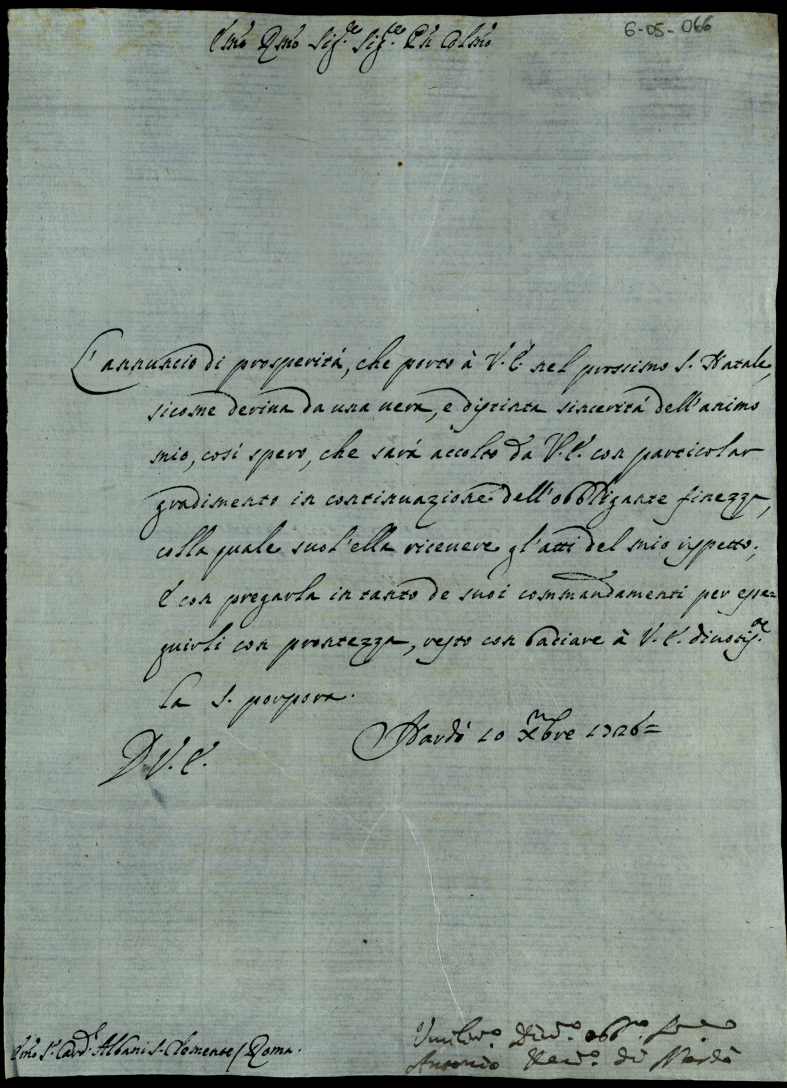 6-05-066
Emo Rmo Sig.re Sig.re Pn Colmo
L'annuncio di prosperitá, che porto à V.E. nel prossimo S. Natale,
sicome deriva da una vera, e distinta sincerità dell'animo
mio, così spero, che sarà accolto da V.E. con particolar
gradimento in continuazione dell'obbligante finezza,
colla quale suol'ella ricevere gl'atti del mio rispetto;
E con pregarla in tanto de suoi commandamenti per ese=
guirli con prontezza, resto con baciare à V.E. divotis.te
la S. porpora.
Nardò 10 Xmbre 1726=
D V.E.
Emo S.r Card.l Albani S. Clemente / Roma.
Umil.mo Dev.o obb.o
Antonio Vesc.o di Nardò